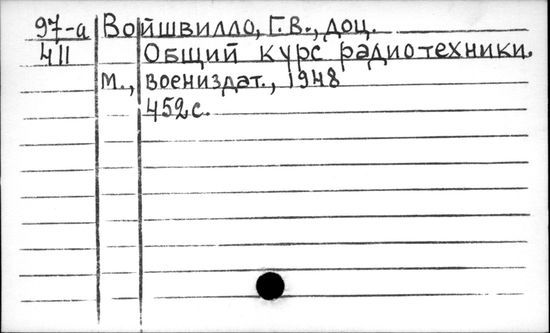 97-а Войшвилло, Г.В., доц.
411 Общий курс радиотехники.
М., Воениздат., 1948
452с.